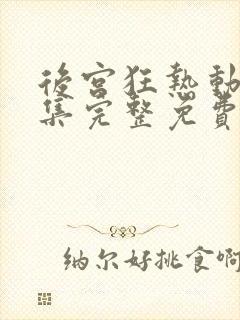 後宫狂热動
集完整免費
纳尔好挑食啊